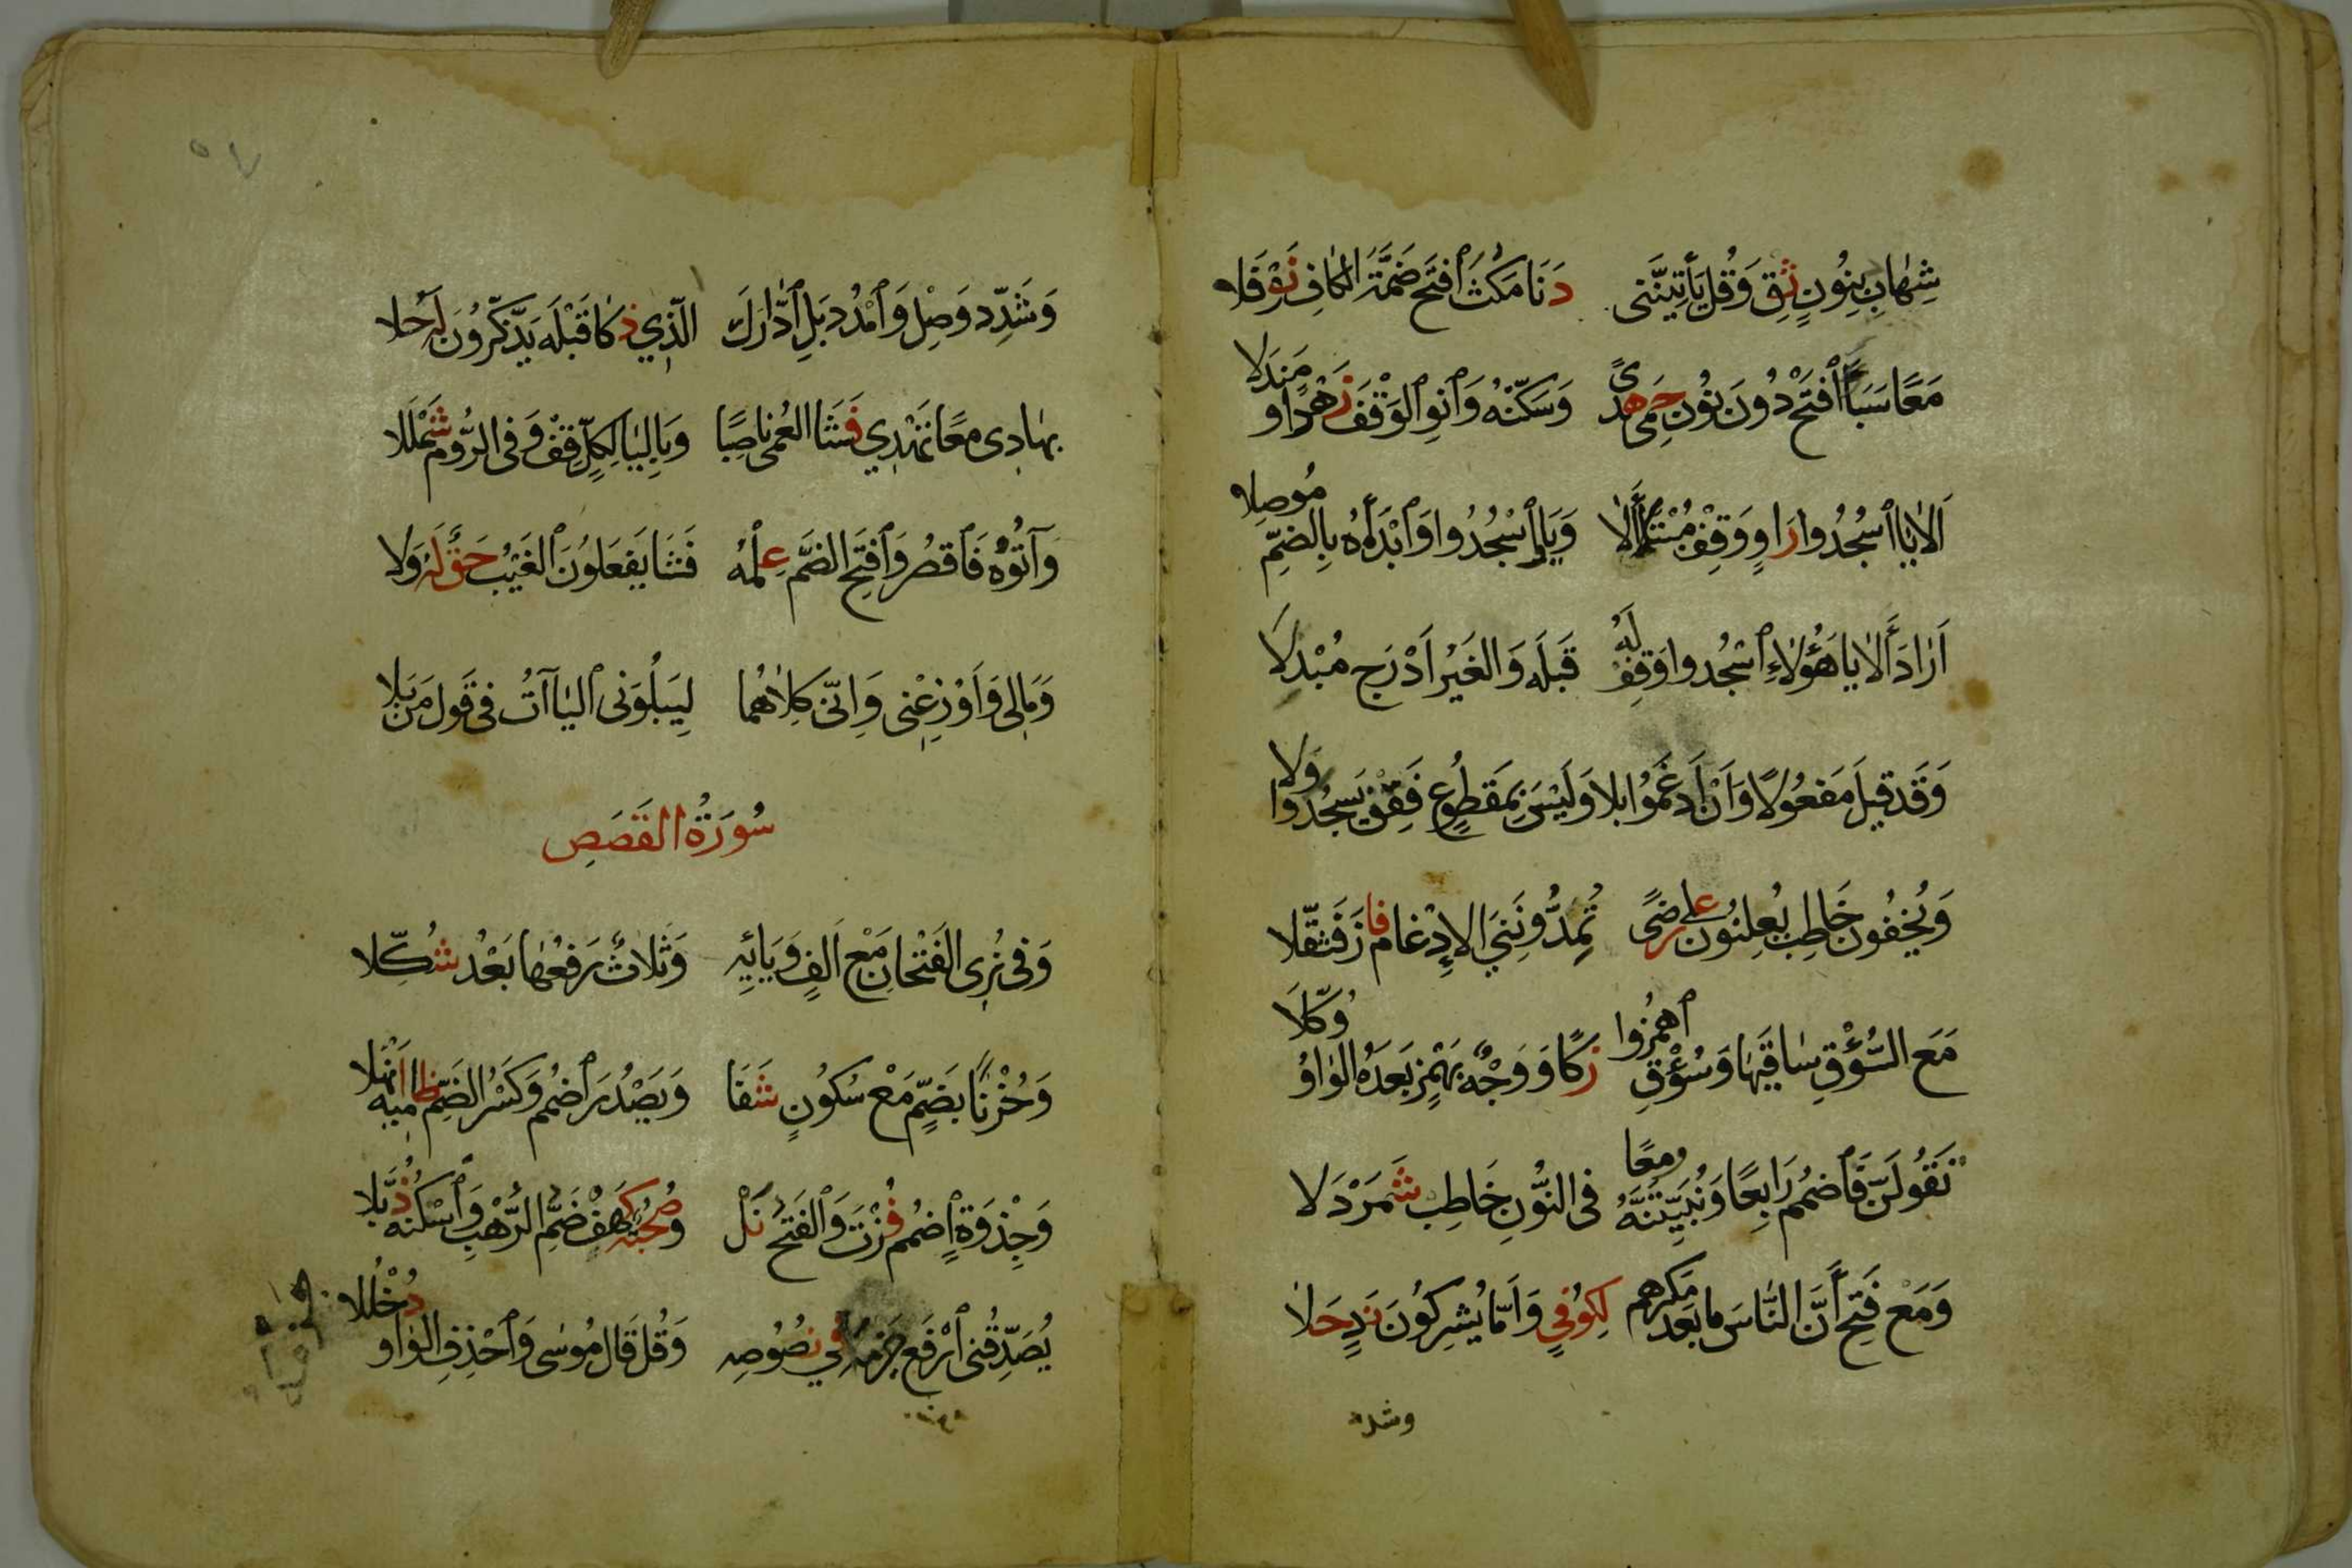 شِهَابٍ بِنُونٍ ثِقْ وَقُلْ يَأْتِيَنَّنِى دَنَا مَكُثَ ٱفْتَحْ ضَمَّةَ الْكَافِ نَوْفَلَا
مَعًا سَبَأَ ٱفْتَحْ دُونَ نُونٍ حِمًى هُدًى وَسَكِّنْهُ وَٱنْوِ الْوَقْفَ زُهْرًا وَمَنْدَلَا
أَلَا يَا ٱسْجُدُوا رَاوٍ وَقِفْ مُبْتَلًى أَلَا وَيَا وَٱسْجُدُوا وَٱبْدَأْهُ بِالضَّمِّ مُوصِلَا
أَرَادَ أَلَا يَا هَؤُلَاءِ ٱسْجُدُوا وَقِفْ لَهُ قَبْلَهُ وَالْغَيْرُ أَدْرَجَ مُبْدِلَا
وَقَدْ قِيلَ مَفْعُولًا وَأَنْ أَدْغَمُوا بِلَا وَلَيْسَ بِمَقْطُوعٍ فَقِفْ يَسْجُدُوا وَلَا
وَيُخْفُونَ خَاطِبْ يُعْلِنُونَ عَلَى رِضًى تُمِدُّونَنِي الْإِدْغَامُ فَازَ فَثَقَّلَا
مَعَ السُّؤْقِ سَاقَيْهَا وَسُؤْقِ ٱهْمِزُوا زَكَا وَوَجْهٌ بِهَمْزٍ بَعْدَهُ الْوَاوُ وُكِّلَا
نَقُولَنَّ فَٱضْمُمْ رَابِعًا وَنُبَيِّتَنَّهُ وَمَعًا فِى النُّونِ خَاطِبْ شَمَرْدَلَا
وَمَعْ فَتْحِ أَنَّ النَّاسَ مَا بَعْدَ مَكْرِهِمْ لِكُوفٍ وَأَمَّا يُشْرِكُونَ نَدٍ حَلَا
وشدد
وَشَدِّدْ وَصِلْ وَٱمْدُدْ بَلِ ٱدَّارَكَ الَّذِي ذَكَا قَبْلَهُ يَذَّكَّرُونَ لَهُ حُلَا
بِهَادِى مَعًا تَهْدِي فَشَا الْعُمْىَ نَاصِبًا وَبِالْيَا لِكُلٍّ قِفْ وَفِى الرُّومِ شَمْلَلَا
وَآتُوهُ فَٱقْصُرْ وَٱفْتَحِ الضَّمَّ عِلْمُهُ فَشَا يَفْعَلُونَ الْغَيْبُ حَقٌّ لَهُ وَلَا
وَمَالِى وَأَوْزِعْنِى وَإِنِّى كِلَاهُمَا لِيَبْلُوَنِى الْيَاآتُ فِى قَوْلِ مَنْ بَلَا
سُورَةُ الْقَصَصِ
وَفِى نُرِى الْفَتْحَانِ مَعْ أَلِفٍ وَيَائِهِ وَثَلَاثٌ رَفْعُهَا بَعْدُ شُكِّلَا
وَحُزْنًا بِضَمٍّ مَعْ سُكُونٍ شَفَا وَيَصْدُرَ ٱضْمُمْ وَكَسْرُ الضَّمِّ ظَامِيهِ أَنْهَلَا
وَجِذْوَةٍ ٱضْمُمْ فُزْتَ وَالْفَتْحَ نَلْ وَصُحْبَةٌ كَهْفُ ضَمِّ الرَّهْبِ وَٱسْكِنْهُ ذُبَّلَا
يُصَدِّقُنِى ٱرْفَعْ جَزْمَهُ فِي نُصُوصِهِ وَقُلْ قَالَ مُوسَى وَٱحْذِفِ الْوَاوَ دُخْلُلَا